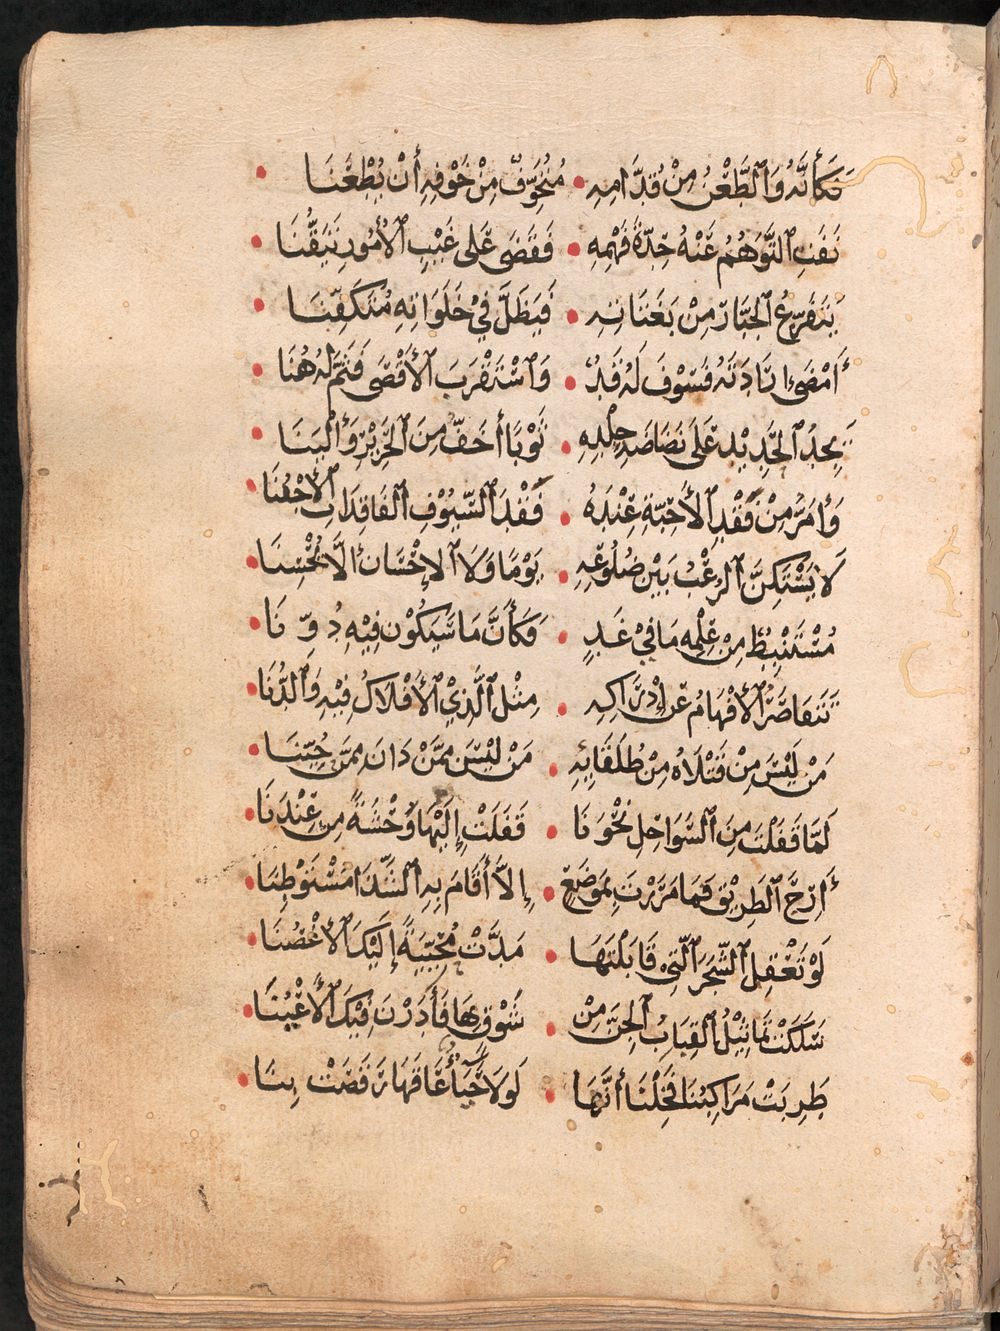 فَكَأَنَّهُ وَالطَّعْنُ مِنْ قُدَّامِهِ • مُتَخَوِّفٌ مِنْ خَوْفِهِ أَنْ يُطْعَنَا •
نَفَتِ التَّوَهُّمُ عَنْهُ حِدَّةُ فَهْمِهِ • فَقَضَى عَلَى غَيْبِ الْأُمُورِ تَيَقُّنَا •
يَتَفَزَّعُ الْجَبَّارُ مِنْ بَغَتَاتِهِ • فَيَظَلُّ فِي خَلَوَاتِهِ مُتَكَفِّنَا •
أَمْضَى إِرَادَتَهُ فَسَوْفَ لَهُ قَدٌ • وَاسْتَقْرَبَ الْأَقْصَى فَثَمَّ لَهُ هُنَا •
يَجِدُ الْحَدِيْدَ عَلَى بَضَاضَةِ جِلْدِهِ • ثَوْبًا أَخَفَّ مِنَ الْحَرِيْرِ وَأَلْيَنَا •
وَأَمَرُّ مِنْ فَقْدِ الْأَحِبَّةِ عِنْدَهُ • فَقْدُ السُّيُوْفِ الْفَاقِدَاتِ الْأَجْفُنَا •
لَا يَسْتَكِنُّ الرُّعْبُ بَيْنَ ضُلُوْعِهِ • يَوْمًا وَلَا الْإِحْسَانُ أَلَّا يُحْسِنَا •
مُسْتَنْبِطٌ مِنْ عِلْمِهِ مَا فِيْ غَدٍ • فَكَأَنَّ مَا سَيَكُوْنُ فِيْهِ دُوِّنَا •
تَتَقَاصَرُ الْأَفْهَامُ عَنْ إِدْرَاكِهِ • مِثْلَ الَّذِيْ الْأَفْلَاكُ فِيْهِ وَالدُّنَا •
مَنْ لَيْسَ مِنْ قَتْلَاهُ مِنْ طُلَقَائِهِ • مَنْ لَيْسَ مِمَّنْ دَانَ مِمَّنْ حُيِّنَا •
لَمَّا قَفَلْتَ مِنَ السَّوَاحِلِ نَحْوَنَا • قَفَلَتْ إِلَيْهَا وَحْشَةٌ مِنْ عِنْدِنَا •
أَرِجَ الطَّرِيْقُ فَمَا مَرَرْتَ بِمَوْضِعٍ • إِلَّا أَقَامَ بِهِ الشَّذَا مُسْتَوْطِنَا •
لَوْ تَعْقِلُ الشَّجَرُ الَّتِيْ قَابَلْتَهَا • مَدَّتْ مُحَيِّيَةً إِلَيْكَ الْأَغْصُنَا •
سَلَكَتْ تَمَاثِيْلَ الْقِبَابِ الْجِنُّ مِنْ • شَوْقٍ بِهَا فَأَدَرْنَ فِيْكَ الْأَعْيُنَا •
طَرِبَتْ مَرَاكِبُنَا فَخِلْنَا أَنَّهَا • لَوْلَا حَيَاءٌ عَاقَهَا رَقَصَتْ بِنَا •